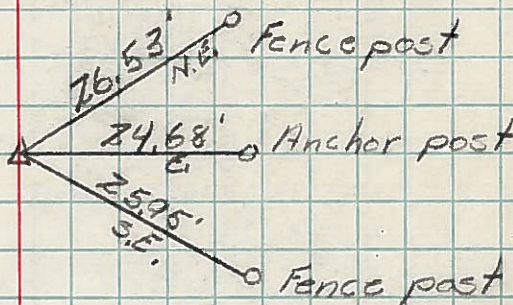 26.53'
N.E.
Fence post
24.68'
E.
Anchor post
25.95'
S.E.
Fence post